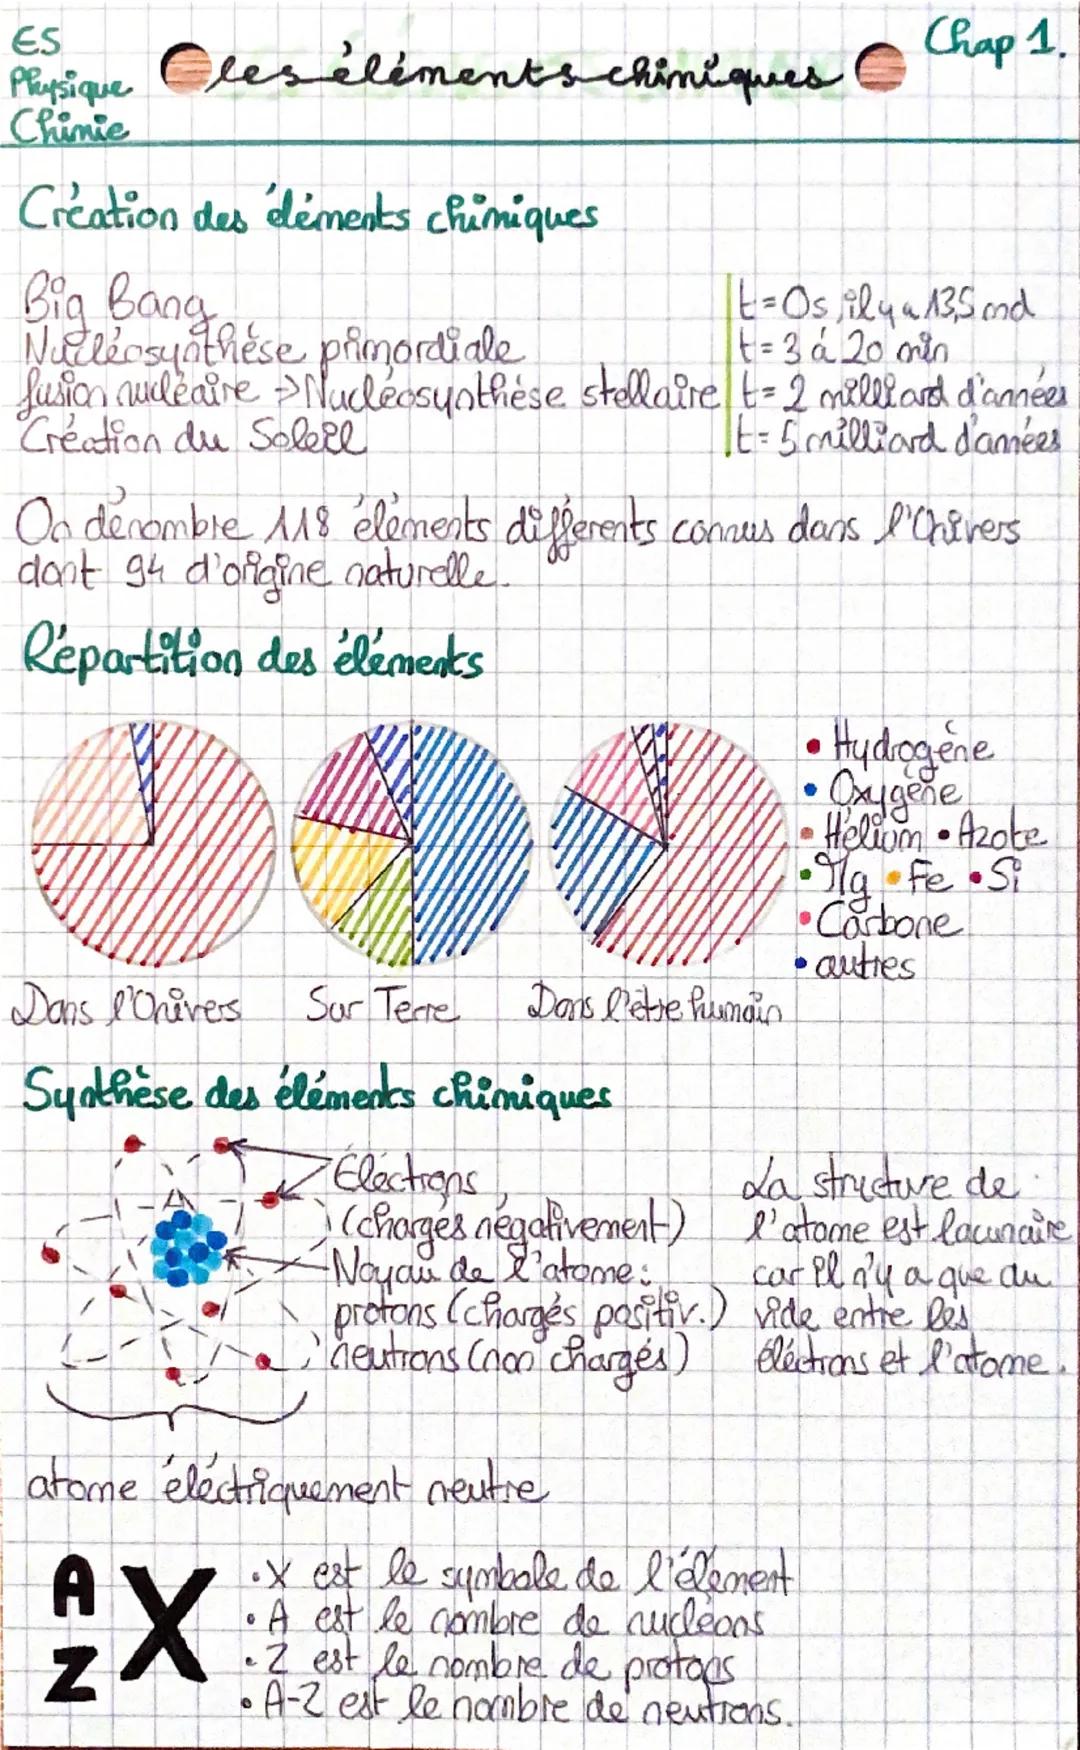 ES
Physique
Chimie
les éléments chimiques
Chap 1.
Création des éléments chimiques
Big Bang
t=0s, il y a 13,5 md
Nucléosynthèse primordiale
t= 3 à 20 min
fusion nucléaire → Nucléosynthèse stellaire
t= 2 milliard d'années
Création du Soleil
t= 5 milliard d'années
On dénombre 118 éléments différents connus dans l'Univers
dont 94 d'origine naturelle.
Répartition des éléments
• Hydrogène
• Oxygène
• Hélium • Azote
• Mg • Fe • Si
• Carbone
• autres
Dans l'Univers
Sur Terre
Dans l'être humain
Synthèse des éléments chimiques
Électrons
(chargés négativement)
Noyau de l'atome :
protons (chargés positiv.)
neutrons (non chargés)
La structure de
l'atome est lacunaire
car il n'y a que du
vide entre les
éléctrons et l'atome.
atome éléctriquement neutre
A
Z
X
• X est le symbole de l'élément
• A est le nombre de nucléons
• Z est le nombre de protons
• A-Z est le nombre de neutrons.